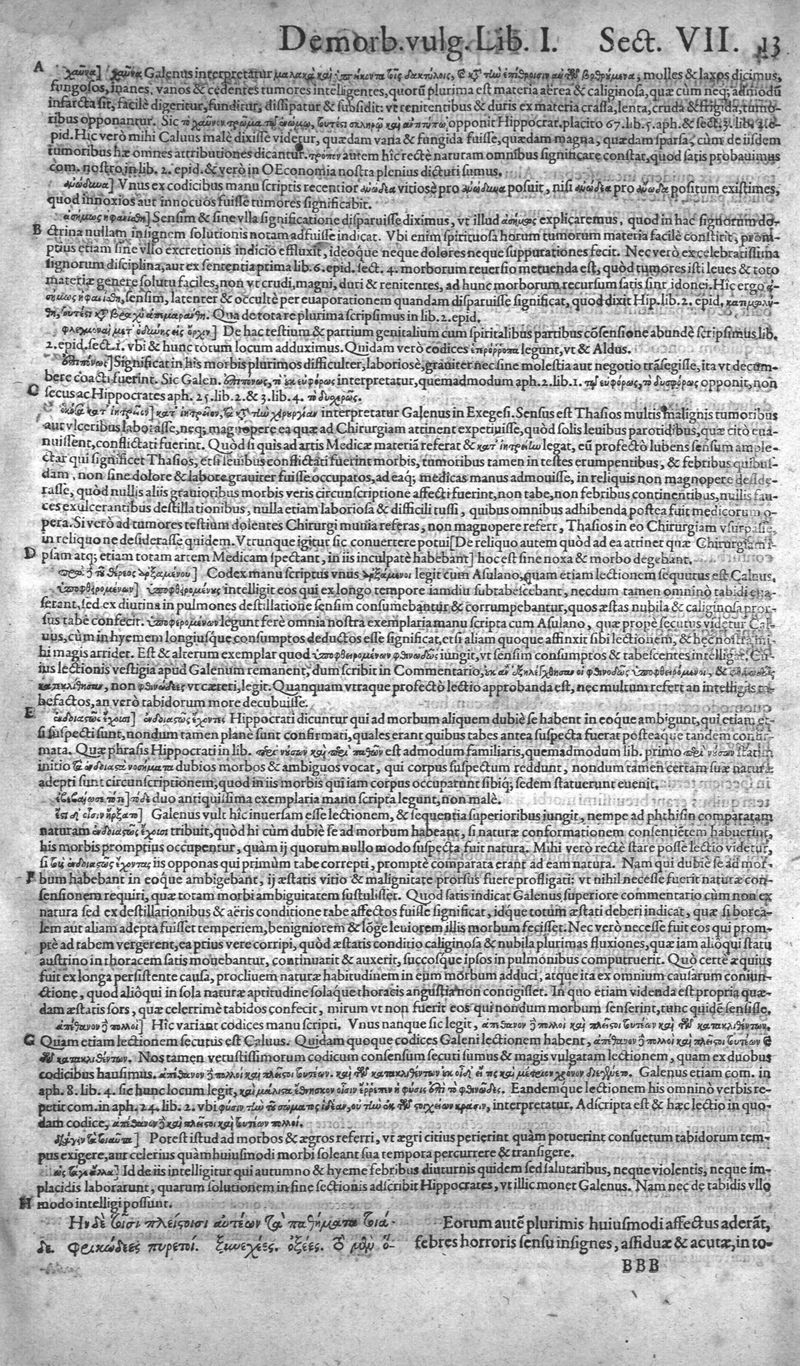 De morb. vulg. Lib. I. Sect. VII. 13
A
χαῦνα] χαῦνα Galenus interpretatur μαλακὰ καὶ molles & laxos dicimus,
fungosos, inanes, vanos & cedentes tumores intelligentes, quorū plurima est materia aërea & caliginosa, quæ cum neq; admodū
infarcta sit, facilè digeritur, funditur, dissipatur & subsidit: vt renitentibus & duris ex materia crassa, lenta, cruda & frigida, tumo-
ribus opponantur. Sic opponit Hippocrat. placito 67. lib. 5. aph. & sect. 3. lib. 2. e-
pid. Hic verò mihi Caluus malè dixisse videtur, quædam varia & fungida fuisse, quædam magna, quædam sparsa, cùm de iisdem
tumoribus hæ omnes attributiones dicantur. τρόπον autem hîc rectè naturam omnibus significare constat, quod satis probauimus
com. nostro in lib. 2. epid. & verò in OEconomia nostra plenius dicturi sumus.
ἀνώδυνα] Vnus ex codicibus manu scriptis recentior vitiosè pro ἀνώδυνα posuit, nisi pro positum existimes,
quod innoxios aut innocuos fuisse tumores significabit.
ἀσήμως ἠφανίσθη] Sensim & sine vlla significatione disparuisse diximus, vt illud ἀσήμως explicaremus, quod in hac signorum do-
B
ctrina nullam insignem solutionis notam adfuisse indicat. Vbi enim spirituosa horum tumorum materia facilè constitit, prom-
ptius etiam sine vllo excretionis indicio effluxit, ideoque neque dolores neque suppurationes fecit. Nec verò ex celebratissima
signorum disciplina, aut ex sententia prima lib. 6. epid. sect. 4. morborum reuersio metuenda est, quòd tumores isti leues & toto
materiæ genere solutu faciles, non vt crudi, magni, duri & renitentes, ad hunc morborum recursum satis sint idonei. Hîc ergo ἀ-
σήμως ἠφανίσθη, sensim, latenter & occultè per euaporationem quandam disparuisse significat, quod dixit Hip. lib. 2. epid.
Qua de tota re plurima scripsimus in lib. 2. epid.
φλεγμοναὶ μετ᾽ ὀδύνης εἰς ὄρχιν] De hac testium & partium genitalium cum spiritalibus partibus cōsensione abundè scripsimus lib.
2. epid. sect. 1. vbi & hunc totum locum adduximus. Quidam verò codices legunt, vt & Aldus.
ἐπιπόνως] Significat in his morbis plurimos difficulter, laboriosè, grauiter nec sine molestia aut negotio trāsegisse, ita vt decum-
bere coacti fuerint. Sic Galen. ἐπιπόνως, interpretatur, quemadmodum aph. 2. lib. 1. opponit, non
C
secus ac Hippocrates aph. 25. lib. 2. & 3. lib. 4.
interpretatur Galenus in Exegesi. Sensus est Thasios multis malignis tumoribus
aut vlceribus laborasse, neq; magnopere ea quæ ad Chirurgiam attinent expetiuisse, quòd solis leuibus parotidibus, quæ citò eua-
nuissent, conflictati fuerint. Quòd si quis ad artis Medicæ materiā referat & κατ᾽ ἰητρείον legat, eū profectò lubens sensum ample-
ctar qui significet Thasios, etsi leuibus conflictati fuerint morbis, tumoribus tamen in testes erumpentibus, & febribus quibus-
dam, non sine dolore & labore grauiter fuisse occupatos, ad eaq; medicas manus admouisse, in reliquis non magnopere deside-
rasse, quòd nullis aliis grauioribus morbis veris circunscriptione affecti fuerint, non tabe, non febribus continentibus, nullis fau-
ces exulcerantibus destillationibus, nulla etiam laboriosa & difficili tussi, quibus omnibus adhibenda postea fuit medicorum o-
pera. Si verò ad tumores testium dolentes Chirurgi munia referas, non magnopere refert, Thasios in eo Chirurgiam vsurpasse,
in reliquo ne desiderasse quidem. Vtrunque igitur sic conuertere potui [De reliquo autem quòd ad ea attinet quæ Chirurgiam i-
D
psam atq; etiam totam artem Medicam spectant, in iis inculpatè habebant] hoc est sine noxa & morbo degebant.
πρωῒ δὲ τοῦ θέρεος ἀρξαμένου] Codex manu scriptus vnus ἀρξάμενοι legit cum Asulano, quam etiam lectionem sequutus est Caluus.
ὑποφθειρομένων] ὑποφθειρομένους intelligit eos qui ex longo tempore iamdiu subtabescebant, necdum tamen omninò tabidi eua-
serant, sed ex diutina in pulmones destillatione sensim consumebantur & corrumpebantur, quos æstas nubila & caliginosa pror-
sus tabe confecit. ὑποφερομένων legunt ferè omnia nostra exemplaria manu scripta cum Asulano, quæ propè secutus videtur Cal-
uus, cùm in hyemem longiusque consumptos deductos esse significat, etsi aliam quoque affinxit sibi lectionem, & hæc nostra mi-
hi magis arridet. Est & alterum exemplar quod ὑποφθειρομένων φθινωδῶς iungit, vt sensim consumptos & tabescentes intelligat. Cu-
ius lectionis vestigia apud Galenum remanent, dum scribit in Commentario,
non φθινώδεες vt cæteri, legit. Quanquam vtraque profectò lectio approbanda est, nec multum refert an intelligas ta-
befactos, an verò tabidorum more decubuisse.
E
ἐνδοιαστῶς ἔχουσι] ἐνδοιαστῶς ἔχοντες Hippocrati dicuntur qui ad morbum aliquem dubiè se habent in eoque ambigunt, qui etiam et-
si suspecti sunt, nondum tamen plane sunt confirmati, quales erant quibus tabes antea suspecta fuerat posteaque tandem confir-
mata. Quæ phrasis Hippocrati in lib. περὶ νούσων καὶ περὶ παθῶν est admodum familiaris, quemadmodum lib. primo περὶ νούσων statim
initio dubios morbos & ambiguos vocat, qui corpus suspectum reddunt, nondum tamen certam suæ naturæ
adepti sunt circunscriptionem, quod in iis morbis qui iam corpus occupatunt sibiq; sedem statuerunt euenit.
duo antiquissima exemplaria manu scripta legunt, non malè.
Galenus vult hîc inuersam esse lectionem, & sequentia superioribus iungit, nempe ad phthisin comparatam
naturam ἐνδοιαστῶς ἔχουσι tribuit, quòd hi cùm dubiè se ad morbum habeant, si naturæ conformationem consentiētem habuerint,
his morbis promptius occupentur, quàm ij quorum nullo modo suspecta fuit natura. Mihi verò rectè stare posse lectio videtur,
si τοὺς ἐνδοιαστῶς ἔχοντας iis opponas qui primùm tabe correpti, promptè comparata erant ad eam natura. Nam qui dubiè se ad mor-
F
bum habebant in eoque ambigebant, ij æstatis vitio & malignitate prorsus fuere profligati: vt nihil necesse fuerit naturæ con-
sensionem requiri, quæ totam morbi ambiguitatem sustulisset. Quod satis indicat Galenus superiore commentario cùm non ex
natura sed ex destillationibus & aëris conditione tabe affectos fuisse significat, idque totum æstati deberi indicat, quæ si borea-
lem aut aliam adepta fuisset temperiem, benigniorem & lōge leuiorem illis morbum fecisset. Nec verò necesse fuit eos qui prom-
ptè ad tabem vergerent, ea prius vere corripi, quòd æstatis conditio caliginosa & nubila plurimas fluxiones, quæ iam alioqui statu
austrino in thoracem satis mouebantur, continuarit & auxerit, succosque ipsos in pulmonibus computruerit. Quò certè æquius
fuit ex longa persistente causa, procliuem naturæ habitudinem in eum morbum adduci, atque ita ex omnium causarum coniun-
ctione, quod alioqui in sola naturæ aptitudine solaque thoracis angustia non contigisset. In quo etiam videnda est propria quæ-
dam æstatis sors, quæ celerrimè tabidos confecit, mirum vt non fuerit eos qui nondum morbum senserint, tunc quidē sensisse.
ἀπέθανον δὲ πολλοὶ] Hîc variant codices manu scripti. Vnus nanque sic legit, ἀπέθανον δὲ πολλοὶ καὶ πλεῖστοι τουτέων καὶ τῶν κατακλιθέντων.
G
Quam etiam lectionem secutus est Caluus. Quidam quoque codices Galeni lectionem habent, ἀπέθανον δὲ πολλοὶ καὶ πλεῖστοι τουτέων ἐκ
τῶν κατακλιθέντων. Nos tamen vetustissimorum codicum consensum secuti sumus & magis vulgatam lectionem, quam ex duobus
codicibus hausimus. ἀπέθανον δὲ πολλοὶ καὶ πλεῖστοι τουτέων. καὶ τῶν κατακλιθέντων οὐκ οἶδ᾽ εἴ τις καὶ μέτριον χρόνον διεγένετο. Galenus etiam com. in
aph. 8. lib. 4. sic hunc locum legit, Eandemque lectionem his omninò verbis re-
petit com. in aph. 24. lib. 2. vbi interpretatur. Adscripta est & hæc lectio in quo-
dam codice, ἀπέθανον δὲ καὶ πλεῖστοι καὶ τουτέων πολλοί.
Potest istud ad morbos & ægros referri, vt ægri citius perierint quàm potuerint consuetum tabidorum tem-
pus exigere, aut celerius quàm huiusmodi morbi soleant sua tempora percurrere & transigere.
ὡς τὰ ἄλλα] Id de iis intelligitur qui autumno & hyeme febribus diuturnis quidem sed salutaribus, neque violentis, neque im-
placidis laborarunt, quarum solutionem in fine sectionis adscribit Hippocrates, vt illîc monet Galenus. Nam nec de tabidis vllo
H
modo intelligi possunt.
Ην δὲ τοῖσι πλείστοισι αὐτέων τὰ παθήματα τοιά-
δε. φρικώδεες πυρετοί. ξυνεχέες. ὀξέες. τὸ μὲν ὅ-
Eorum autē plurimis huiusmodi affectus aderāt,
febres horroris sensu insignes, assiduæ & acutæ, in to-
BBB